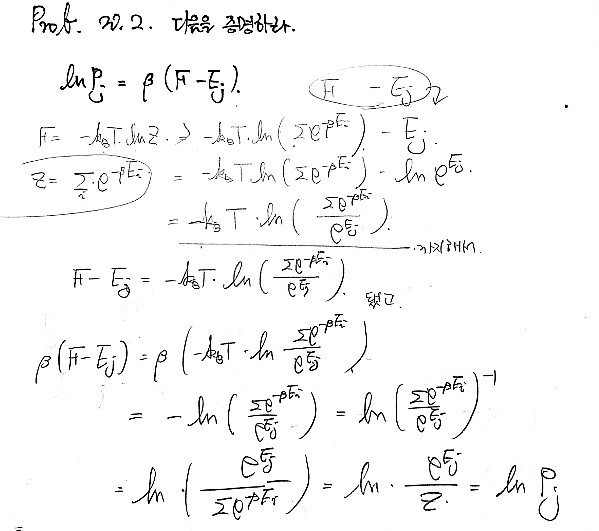 Prob. 20.2. 다음을 증명하라.
ln Pj = β (F - Ej).
F - Ej
F = -kBT. lnZ. → -kBT. ln( Σe^-βEi ) - Ej.
Z = Σi e^-βEi = -kBT ln( Σe^-βEi ) - ln e^Ej.
= -kBT · ln ( Σe^-βEi / e^Ej ).
F - Ej = -kBT · ln ( Σe^-βEi / e^Ej ). 됐고
β(F - Ej) = β ( -kBT · ln Σe^-βEi / e^Ej )
= - ln ( Σe^-βEi / e^Ej ) = ln ( Σe^-βEi / e^Ej )^-1
= ln · ( e^Ej / Σe^-βEi ) = ln · e^Ej / Z = ln Pj